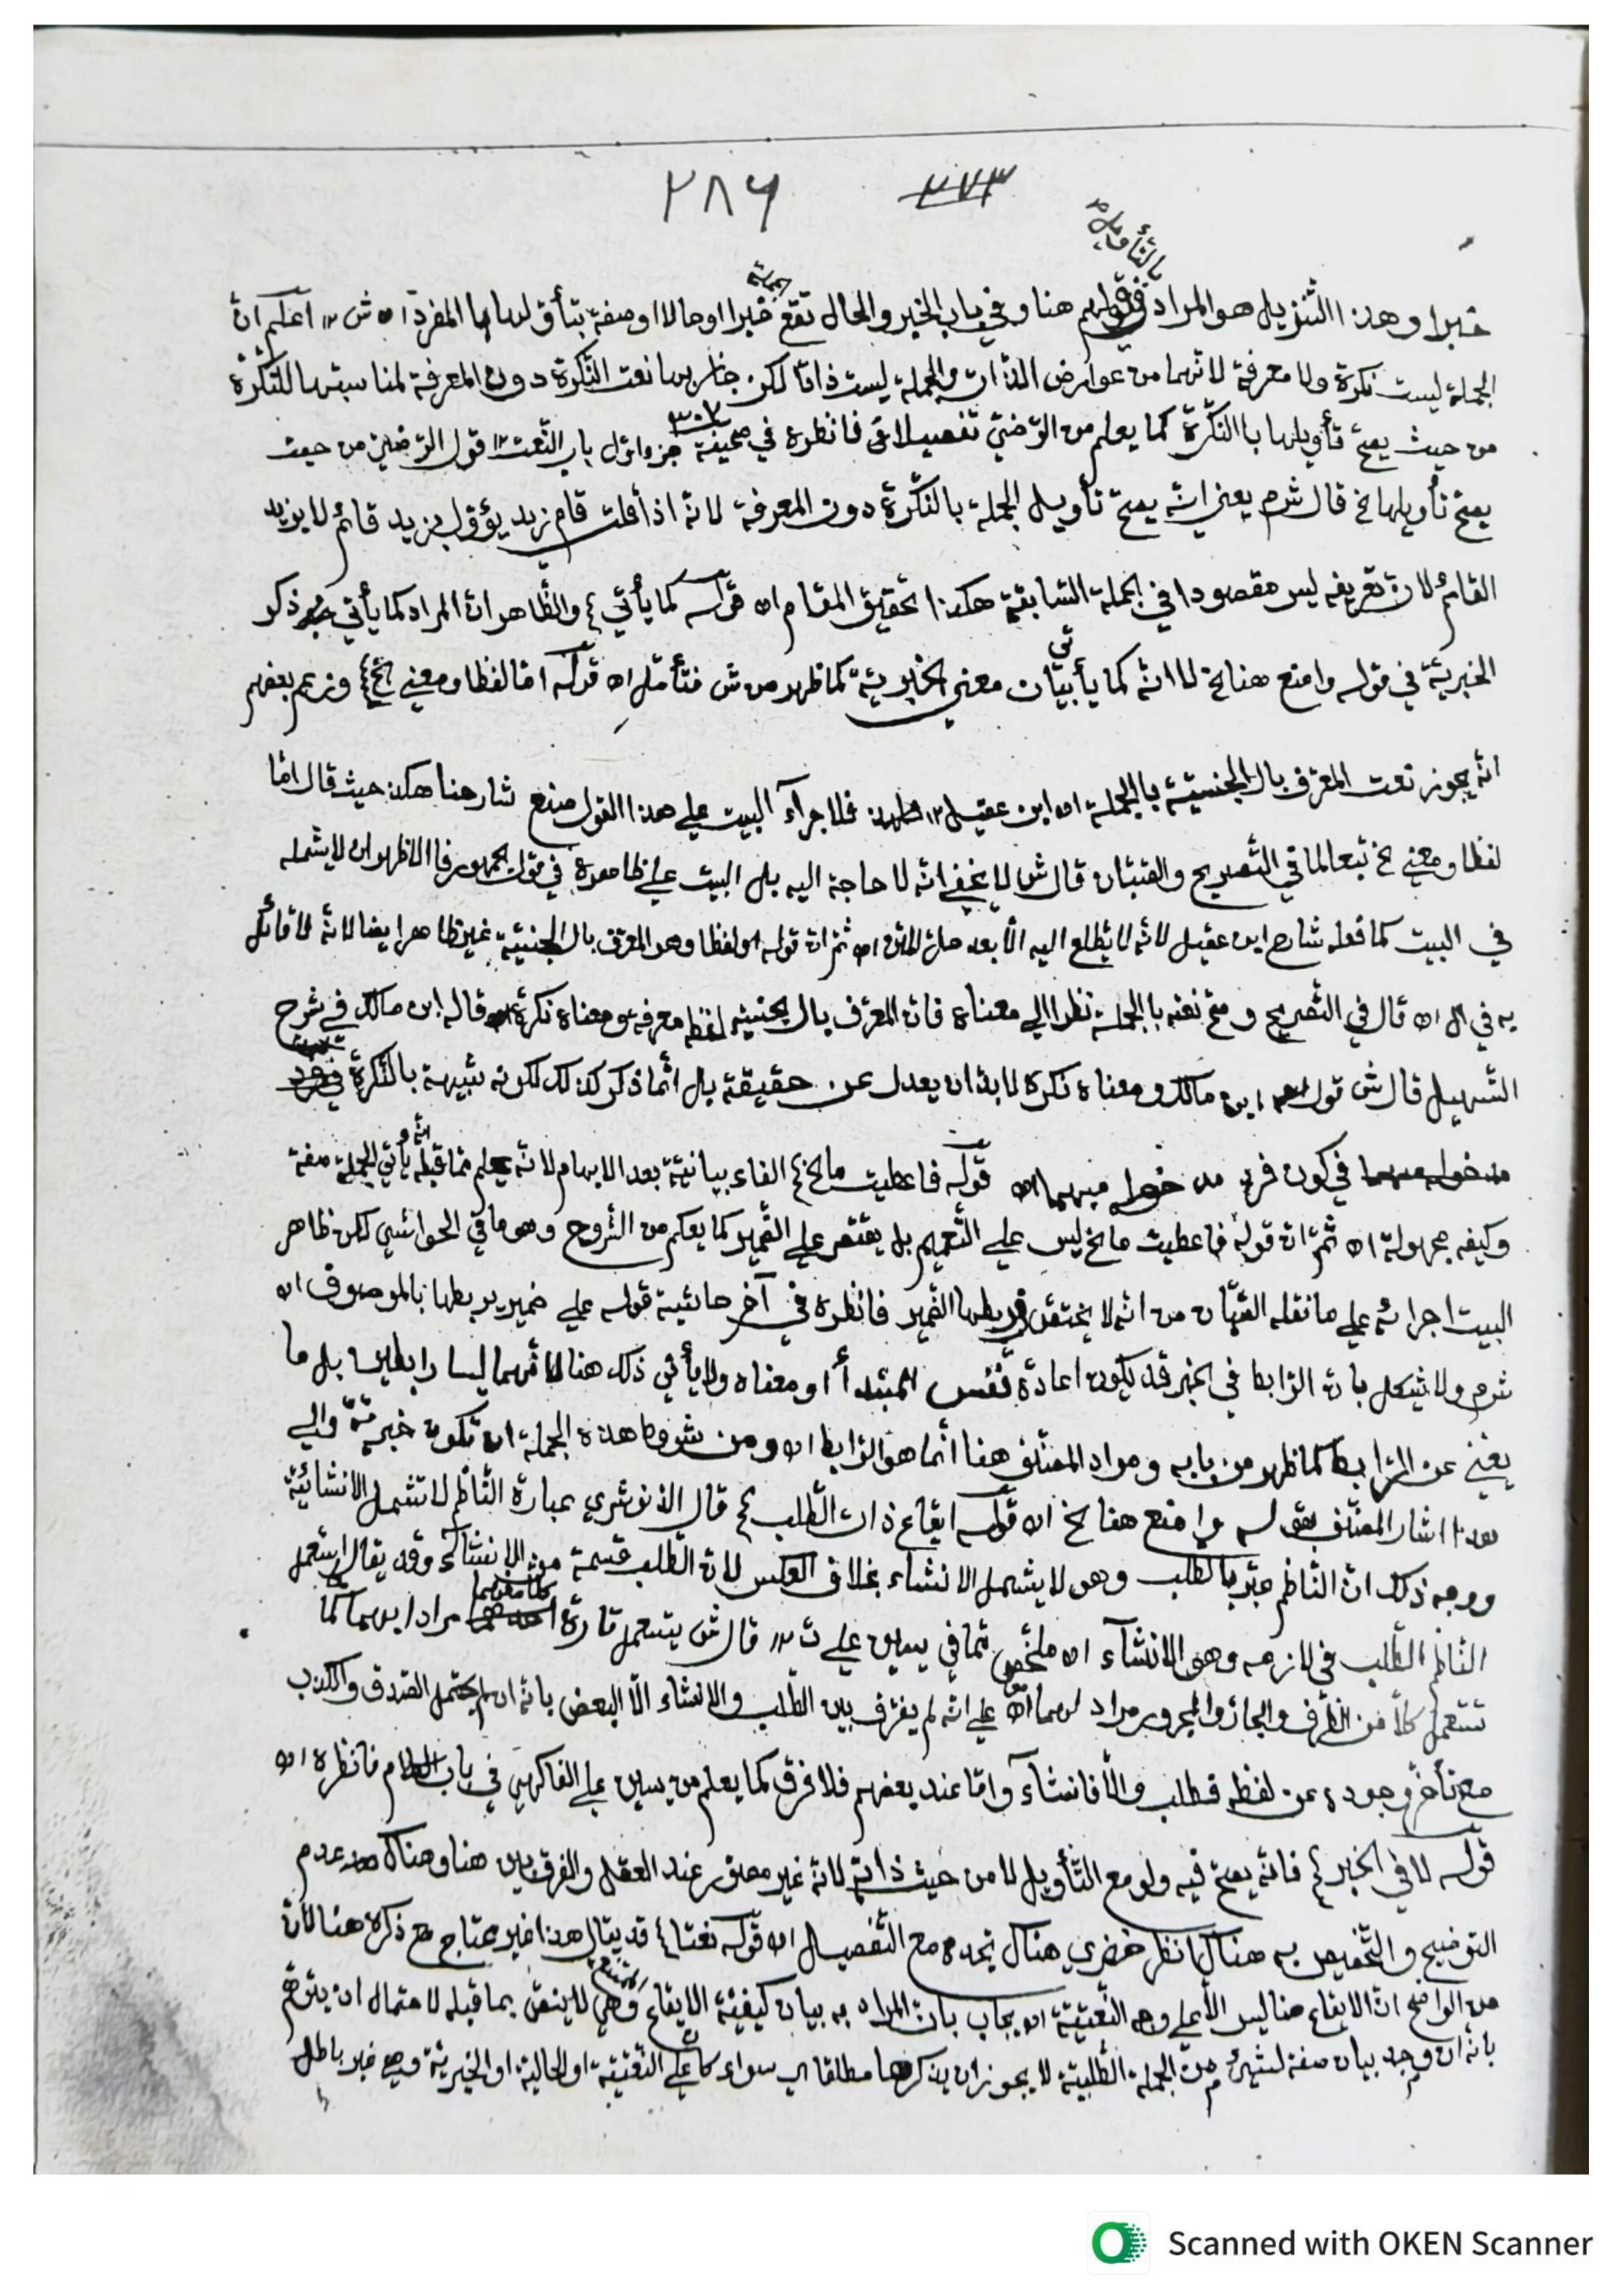 ٢٨٦ ٢٧٣
بالتأويل
خبرا وهذا التنزيل هو المراد في قولهم هنا وفي باب الخبر والحال تقع الجملة خبرا او حالا او صفة بتأويلها بالمفرد اه ش ١٢ اعلم انّ
الجملة ليست نكرة ولا معرفة لانهما من عوارض الذات والجملة ليست ذاتا لكن جاز بها نعت النّكرة دون المعرفة لمناسبتها للنّكرة
من حيث يصحّ تأويلها بالنّكرة كما يعلم من الرّضيّ تفصيلا فانظره في صحيفة ٣٠٧ جز اوّل باب النّعت ١٢ قول الرّضيّ من حيث
يصحّ تأويلها الخ قال ش م يعني انّه يصحّ تأويل الجملة بالنّكرة دون المعرفة لانّه اذا قلت قام زيد يؤوّل بزيد قائم لا بزيد
القائم لانّ تعريفه ليس مقصودا في الجملة السّابقة هكذا تحقيق المقام اه قوله كما يأتي ع والظّاهر انّ المراد كما يأتي ذكر
الخبريّة في قوله وامنع هنا الخ لا انّه كما يأتي بيان معنى الخبريّة كما ظهر من ش فتأمّل اه قوله امّا لفظا ومعنى الخ ع وزعم بعضهم
انّه يجوز نعت المعرّف بال الجنسيّة بالجملة اه ابن عقيل ١٢ فلاجراء البيت على هذا القول صنع شارحنا هكذا حيث قال امّا
لفظا ومعنى الخ تبعا لما في التّصريح والصّبّان قال ش لا يخفى انّه لا حاجة اليه بل البيت على ظاهره في قول الجمهور فالاظهر ان لا يشمله
في البيت كما فعله شارح ابن عقيل لانّه لا يطّلع اليه الّا بعد حلّ المتن اه ثمّ انّ قوله او لفظا وهو المعرّف بال الجنسيّة غير ظاهر ايضا لانّه لا قائل
به في ال اه قال في التّصريح وصحّ نعته بالجملة نظرا الى معناه فانّ المعرّف بال الجنسيّة لفظه معرفة ومعناه نكرة قاله ابن مالك في شرح
التّسهيل قال ش قول ابن مالك ومعناه نكرة لا بدّ ان يعدل عن حقيقة بل انّما ذكر كذلك لكونه شبيهة بالنّكرة
في كون فرد مدخولهما مبهما اه قوله فاعطيت ما الخ ع الفاء بيانيّة بعد الابهام لانّه يعلم ممّا قبله انّه يأتي الجملة صفة
وكيفه مجهولة اه ثمّ انّ قوله فاعطيت ما الخ ليس على التّعميم بل يقتصر على الضّمير كما يعلم من الشّروح وهو ما في الحواشي لكن ظاهر
البيت اجرائه على ما نقله الصّبّان من انّه لا يختصّ ربطها الضّمير فانظره في آخر حاشية قوله على ضمير يربطها بالموصوف اه
ش م ولا تشكل بانّ الرّابط في الخبر قد يكون اعادة نفس المبتدأ او معناه ولا يأتي ذلك هنا لانّهما ليسا رابطين بل ما
يغني عن الرّابط كما ظهر من بابه ومراد المصنّف هنا انّما هو الرّابط اه ومن شروط هذه الجملة ان تكون خبريّة والى
هذا اشار المصنّف بقوله وامنع هنا الخ اه قوله ايقاع ذات الطّلب ع قال الذنوشري عبارة النّاظم لا تشمل الانشائيّة
ووجه ذلك انّ النّاظم عبّر بالطّلب وهو لا يشمل الانشاء بخلاف العكس لانّ الطّلب قسمة من الانشاء وقد يقال استعمل
النّاظم الطّلب في لازمه وهو الانشآء اه ملخّص ممّا في يسين على ت ١٢ قال ش يستعمل تارة كلّا منهما مرادا بهما كما
تستعمل كلّا من الظّرف والجارّ والمجرور مرادا بهما على انّه لم يفرّق بين الطّلب والانشاء الّا البعض بانّه ان لم يحتمل الصّدق والكذب
مع تأخّر وجوده عن لفظه فطلب والّا فانشآء وامّا عند بعضهم فلا فرق كما يعلم من يسين على الفاكهي في باب الكلام فانظره اه
قوله لا في الخبر ع فانّه يصحّ فيه ولو مع التّأويل لا من حيث ذاته لانّه غير معتبر عند العقل والفرق بين هنا وهناك عدم
التوضيح والتّخصيص به هناك انظر خضري هناك تجده مع التّفصيل اه قوله نعتا ع قد يقال هذا غير محتاج مع ذكره هنا لانّ
من الواضح انّ الايقاع هنا ليس الّا على وجه النّعتيّة اه يجاب بانّ المراد به بيان كيفيّة الايقاع وهي لا ينتفى بما قبله لاحتمال ان يتوهّم
بانّه ان وجد بيان صفة لشيء من الجملة الطّلبيّة لا يجوز ان يذكرها مطلقا اي سواء كان على النّعتيّة او الحاليّة او الخبريّة وهو غير باطل
Scanned with OKEN Scanner